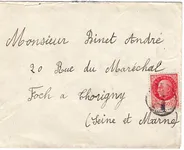 Monsieur Binet André
20 Rue du Maréchal
Foch à Thorigny
(Seine et Marne)